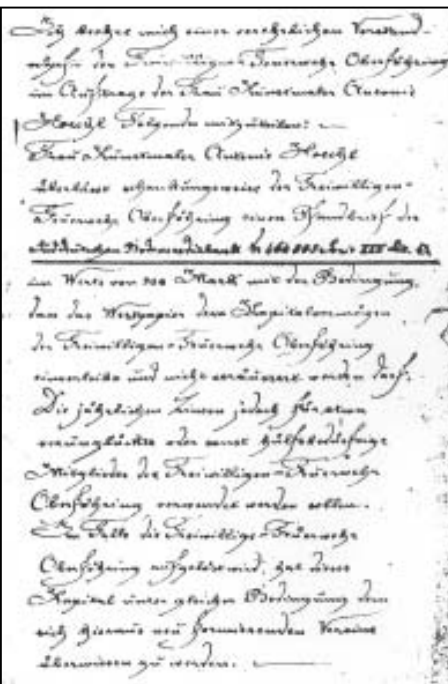 Ich beehre mich einer verehrlichen Vorstand-
schaft der Freiwilligen Feuerwehr Oberföhring
im Auftrage der Frau Kunstmaler Antonie
Hoechl Folgendes mitzuteilen:
Frau Kunstmaler Antonie Hoechl
überlässt schenkungsweise der Freiwilligen-
Feuerwehr Oberföhring einen Pfandbrief der
Süddeutschen Bodencreditbank
im Werte von 500 Mark mit der Bedingung,
dass das Wertpapier dem Kapitalvermögen
der Freiwilligen-Feuerwehr Oberföhring
einverleibt und nicht veräussert werden darf.
Die jährlichen Zinsen jedoch für etwa
verunglückte oder sonst hülfsbedürftige
Mitglieder der Freiwilligen-Feuerwehr
Oberföhring verwendet werden sollen.
Im Falle die Freiwillige-Feuerwehr
Oberföhring aufgelöst wird, hat dieses
Kapital unter gleichen Bedingung dem
sich hieraus neu formierenden Vereine
überwiesen zu werden.